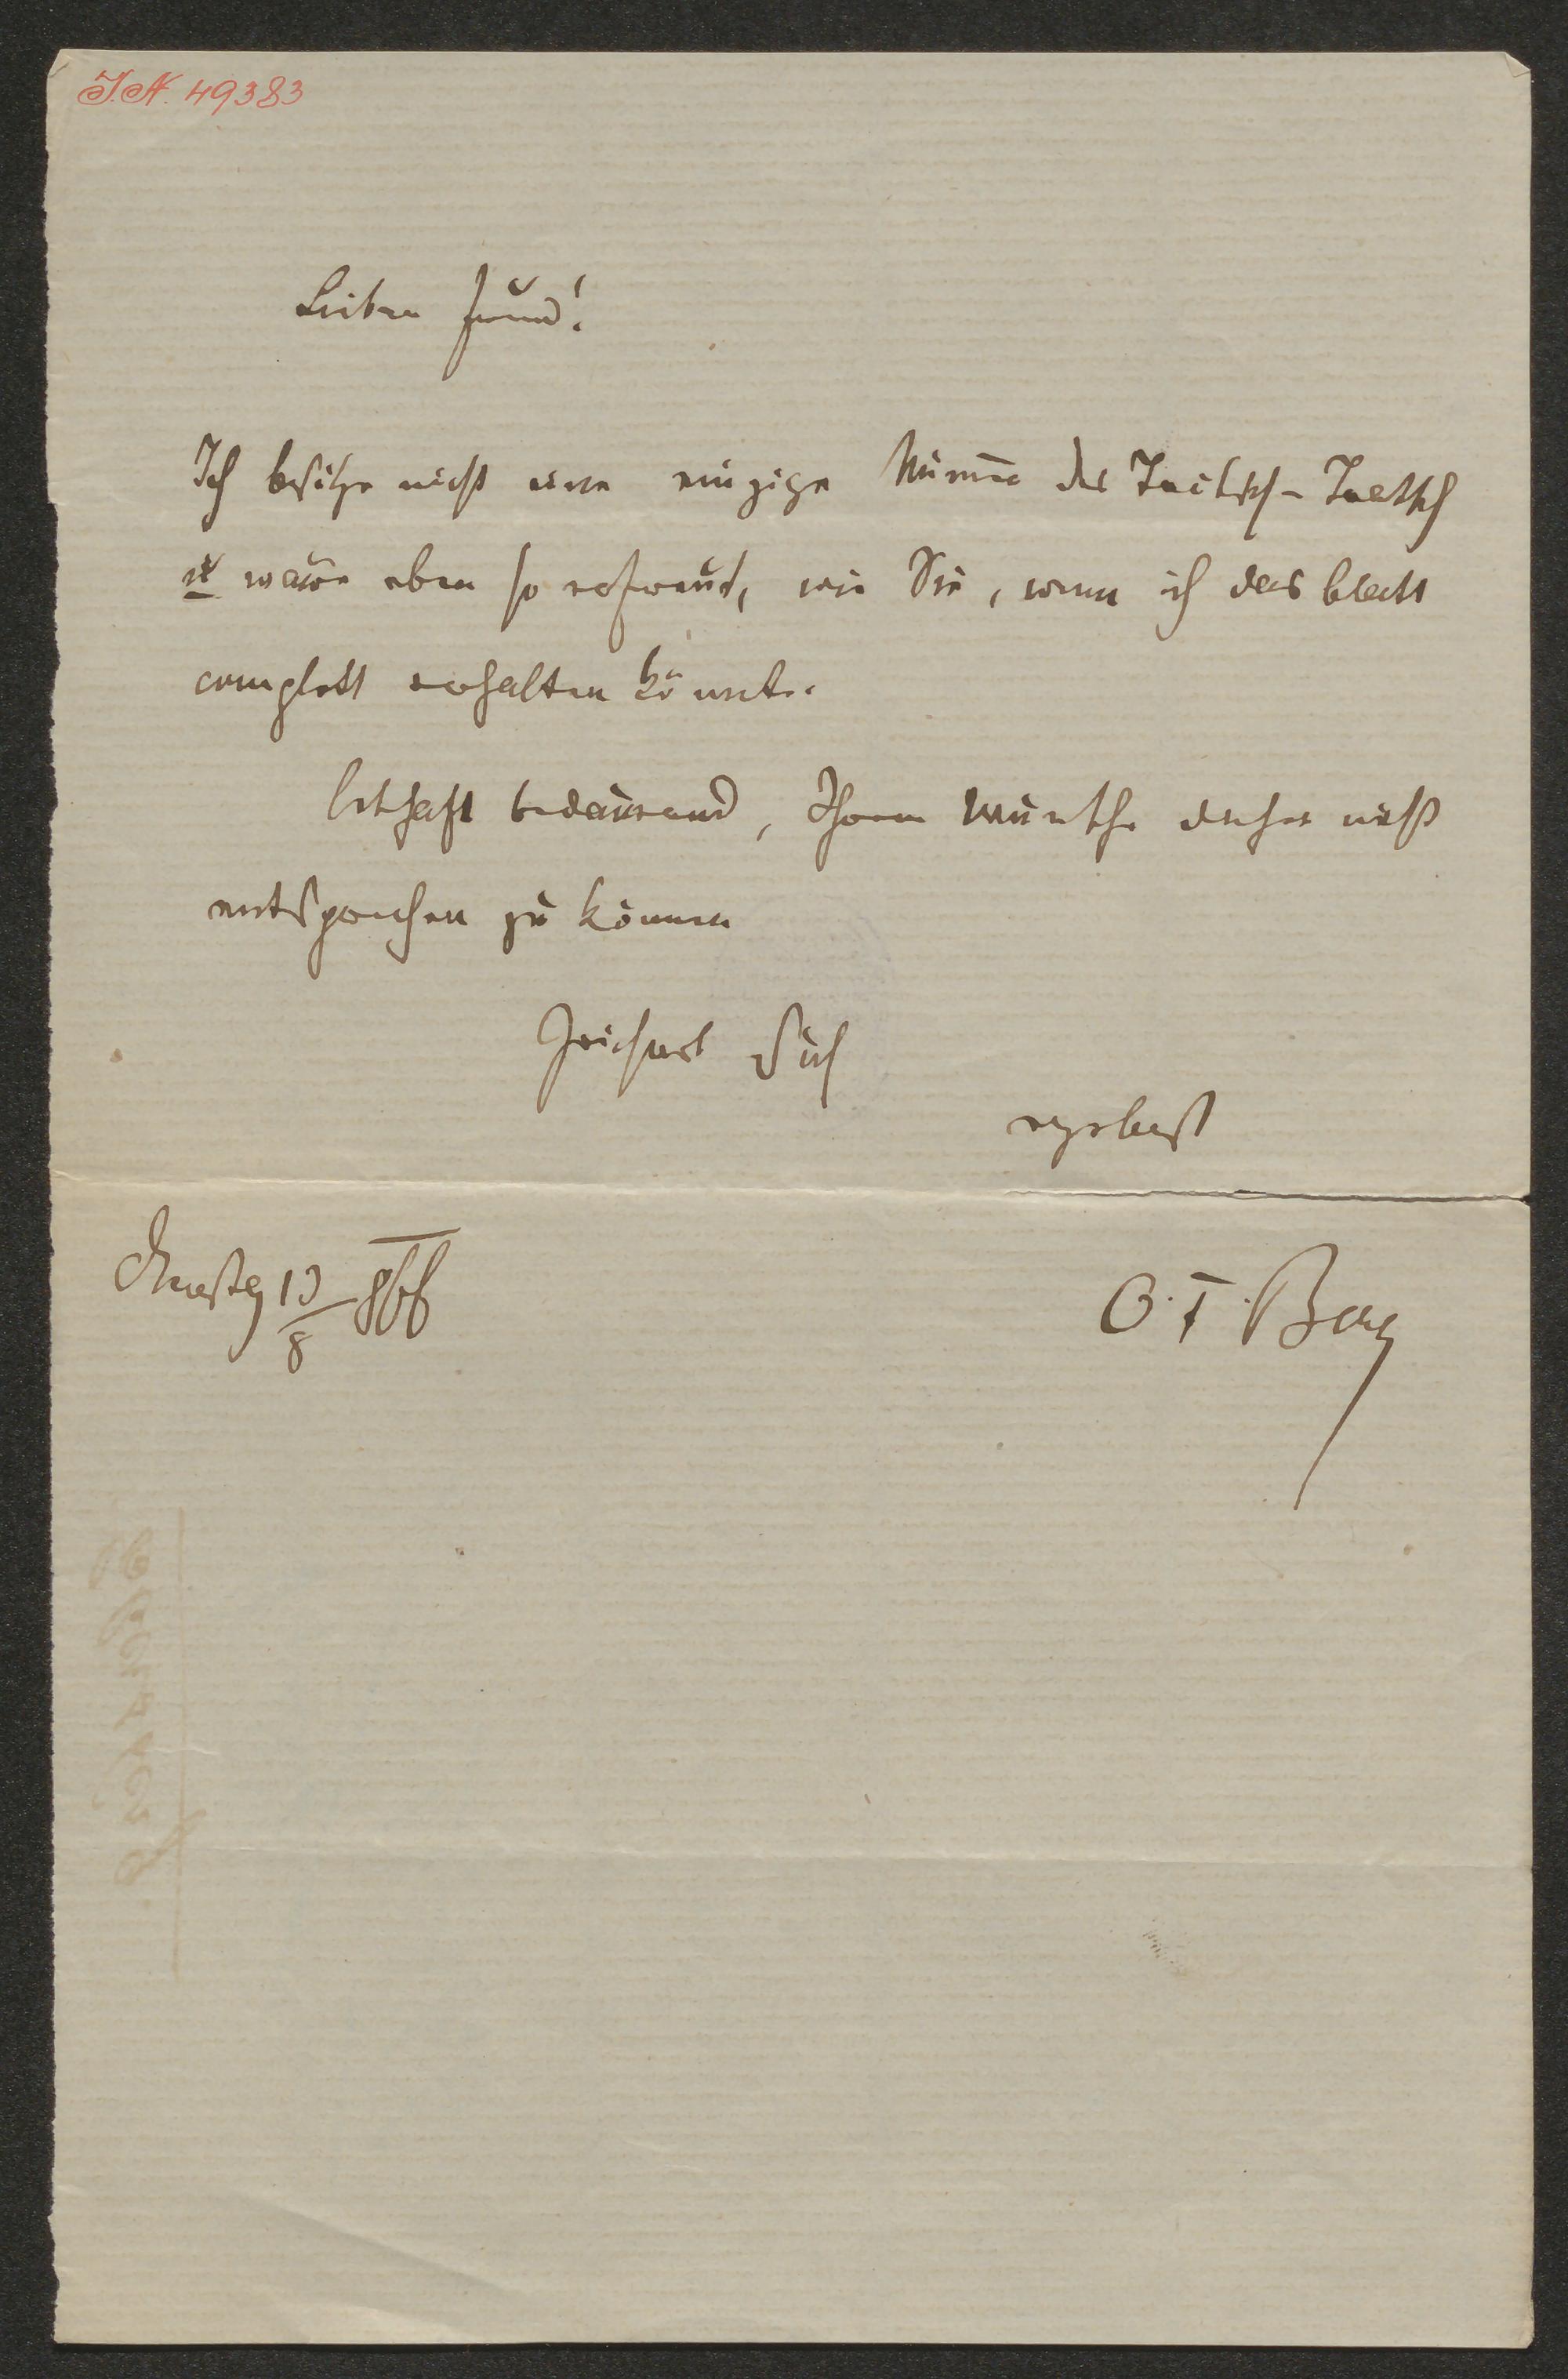 I.N. 49383
Lieber Freund!
Ich besitze nicht eine einzige Numer des Tritsch-Tratsch
u wäre eben so erfreut, wie Sie, wenn ich das Blatt
complett erhalten könnte.
Lebhaft bedauernd, Ihrem Wunsche daher nicht
entsprechen zu können
zeichnet sich
ergebenst
Dienstag 13/8 867
O. F. Berg